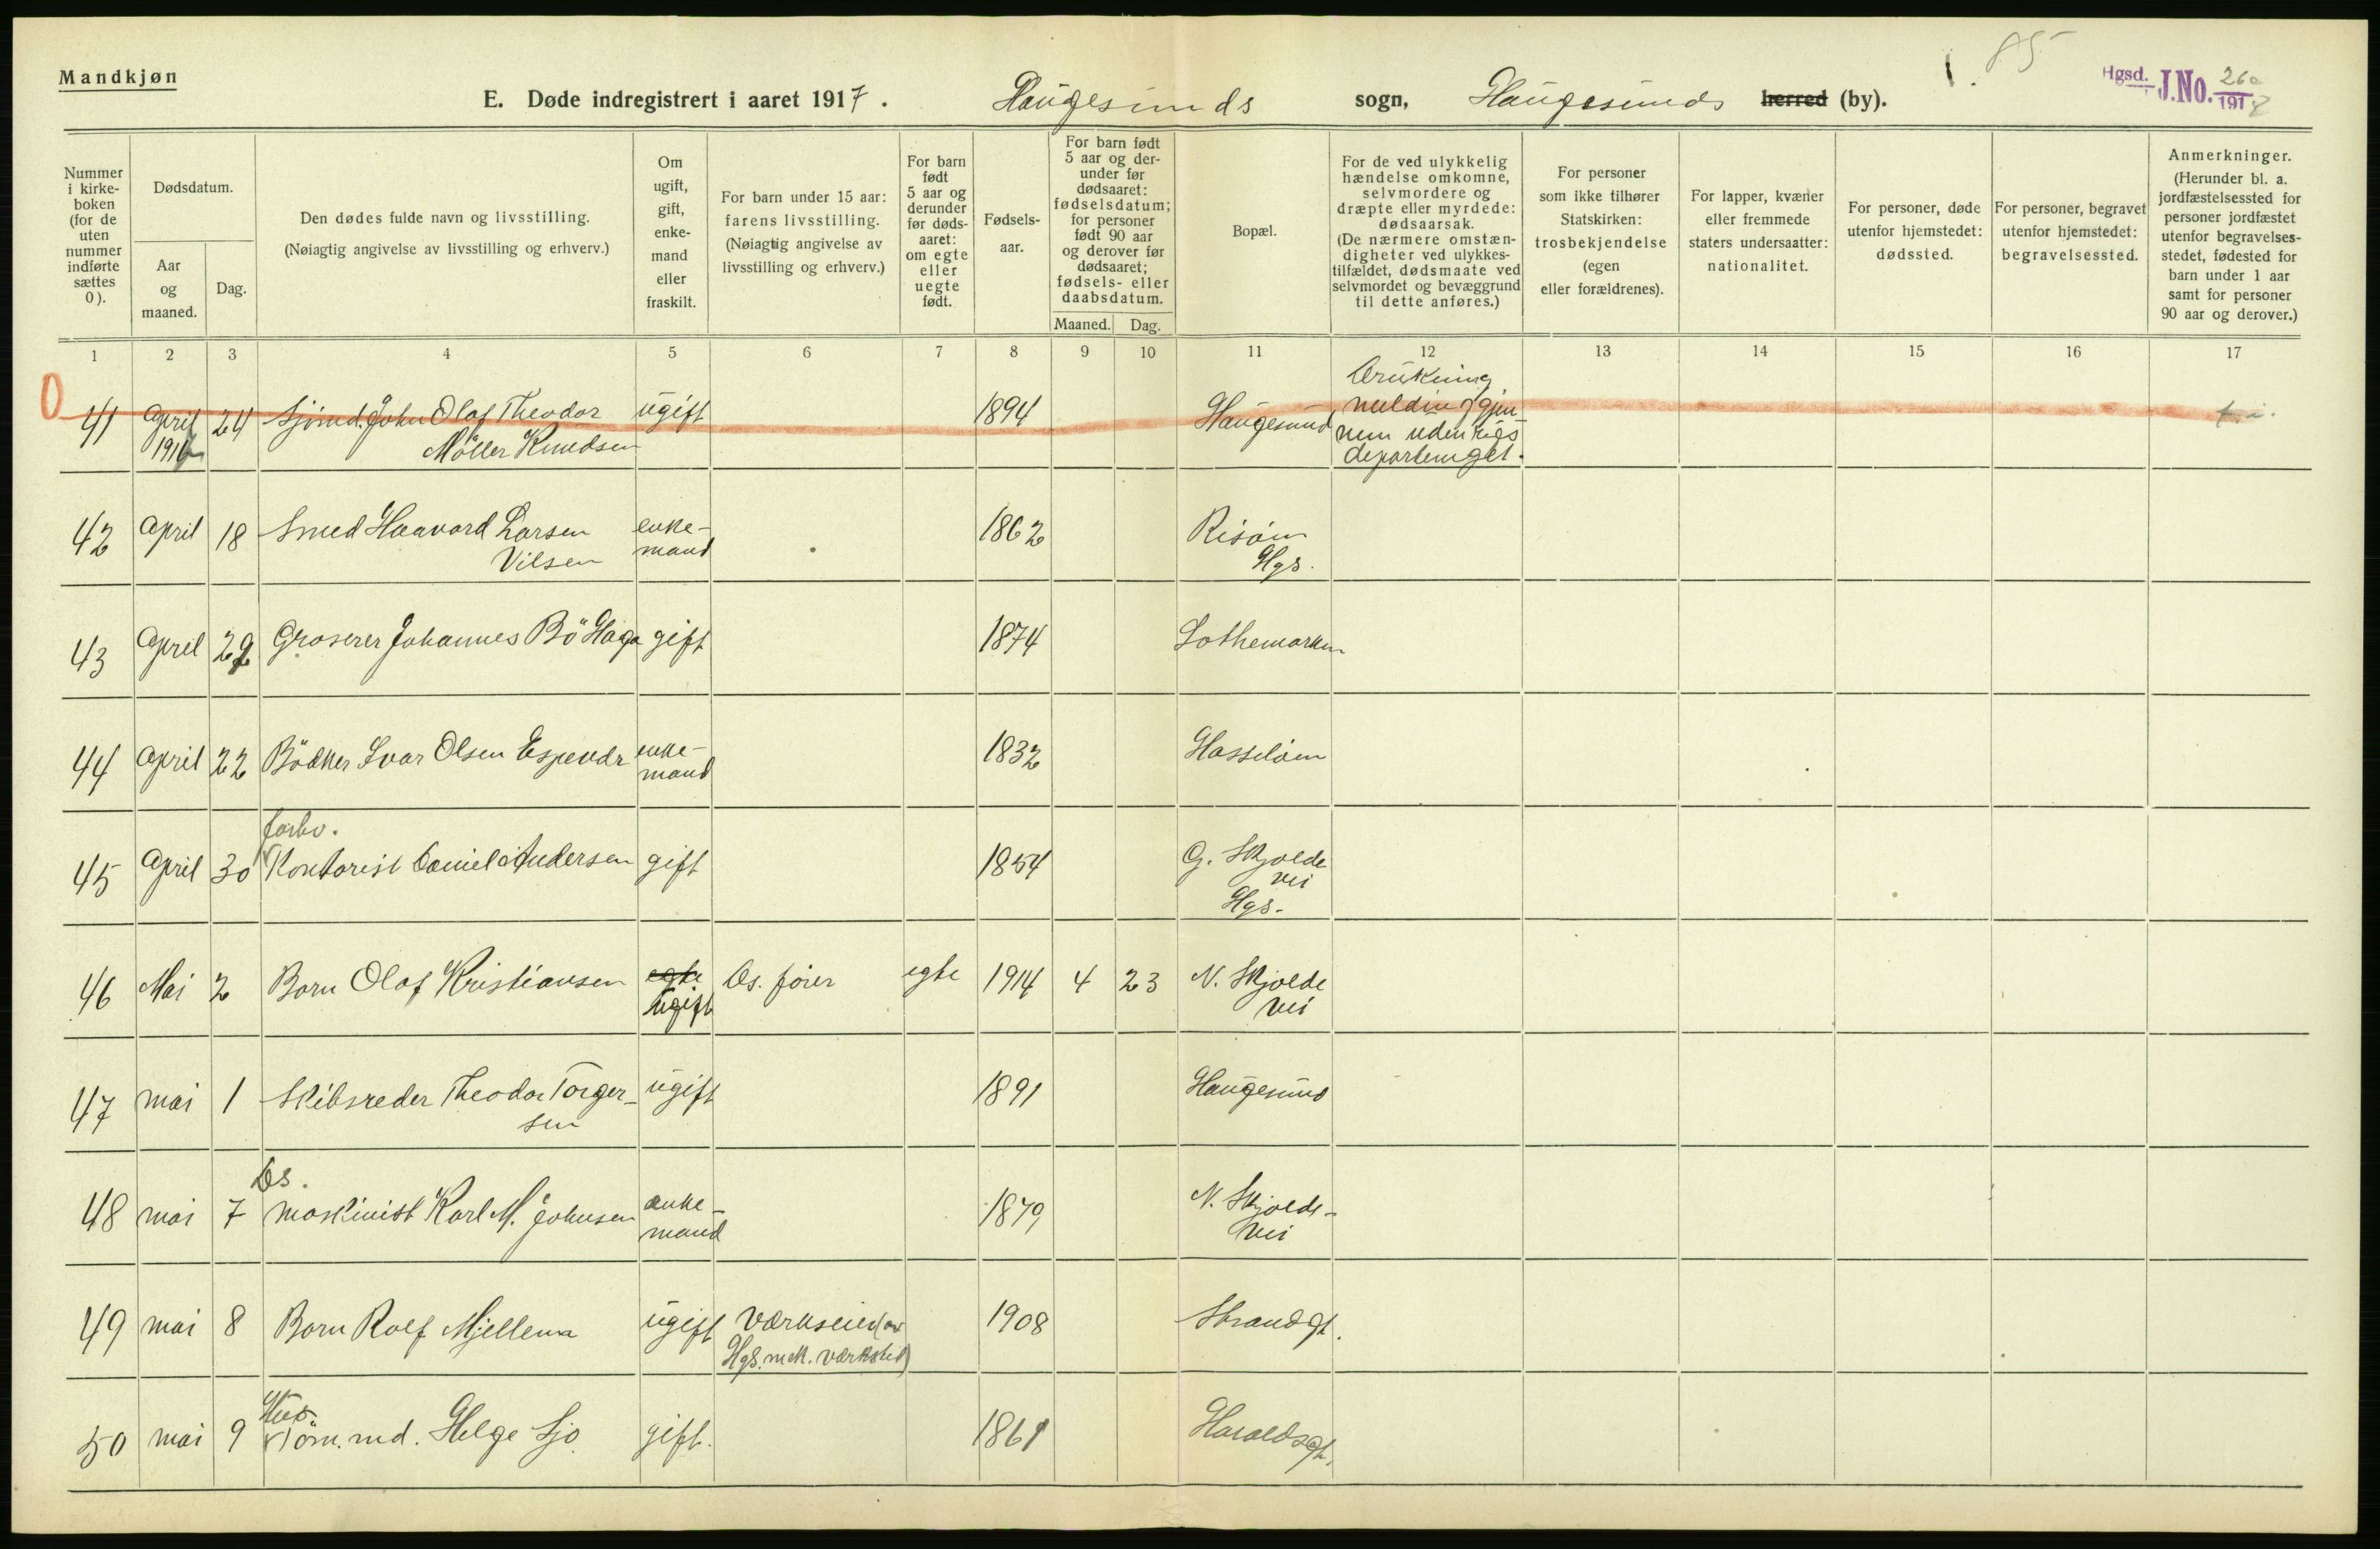 Mandkjøn
E. Døde indregistrert i aaret 1917. Haugesunds sogn, Haugesunds herred (by).
85
Hgsd. J.No. 260/1918
Nummer i kirke-boken (for de uten nummer indførte sættes 0).
Dødsdatum.
Aar og maaned.
Dag.
Den dødes fulde navn og livsstilling.
(Nøiagtig angivelse av livsstilling og erhverv.)
Om ugift, gift, enke-mand eller fraskilt.
For barn under 15 aar: farens livsstilling. (Nøiagtig angivelse av livsstilling og erhverv.)
For barn født 5 aar og derunder før døds-aaret: om egte eller uegte født.
Fødsels-aar.
For barn født 5 aar og der-under før dødsaaret: fødselsdatum; for personer født 90 aar og derover før dødsaaret; fødsels- eller daabsdatum.
Maaned. Dag.
Bopæl.
For de ved ulykkelig hændelse omkomne, selvmordere og dræpte eller myrdede: dødsaarsak. (De nærmere omstæn-digheter ved ulykkes-tilfældet, dødsmaate ved selvmordet og bevæggrund til dette anføres.)
For personer som ikke tilhører Statskirken: trosbekjendelse (egen eller forældrenes).
For lapper, kvæner eller fremmede staters undersaatter: nationalitet.
For personer, døde utenfor hjemstedet: dødssted.
For personer, begravet utenfor hjemstedet: begravelsessted.
Anmerkninger. (Herunder bl. a. jordfæstelsessted for personer jordfæstet utenfor begravelses-stedet, fødested for barn under 1 aar samt for personer 90 aar og derover.)
1 2 3 4 5 6 7 8 9 10 11 12 13 14 15 16 17
0
41 April 24 Sjömd. John Olaf Theodor ugift 1894 Haugesund Drukning
1916 Möller Knudsen meldin gjen-
nem udenrigs
departemget.
42 April 18 Smed Haavard Larsen enke- 1862 Risöin
Vilsen mand Hgs.
43 April 29 Groserer Johannes Bö Haga gift 1874 Lothemarken
44 April 22 Bödker Ivar Olsen enke- 1832 Hasselöin
mand
forhv.
45 April 30 Kontorist Daniel Andersen gift 1854 G. Skjolde
vei
Hgs.
46 Mai 2 Barn Olaf Kristiansen egte Ds. förer egte 1914 4 23 N. Skjolde
ugift vei
47 mai 1 Skibsreder Theodor Torger- ugift 1891 Haugesund
sen
Ds.
48 mai 7 maskinist Karl M. Johnsen enke- 1879 N. Skjolds-
mand vei
49 mai 8 Barn Rolf Mjellem ugift Værkseier (av 1908 Strandgt.
Hgs. mek. værksted)
Hus
50 mai 9 Töm.md. Helge Sjo gift. 1861 Haraldsgt.